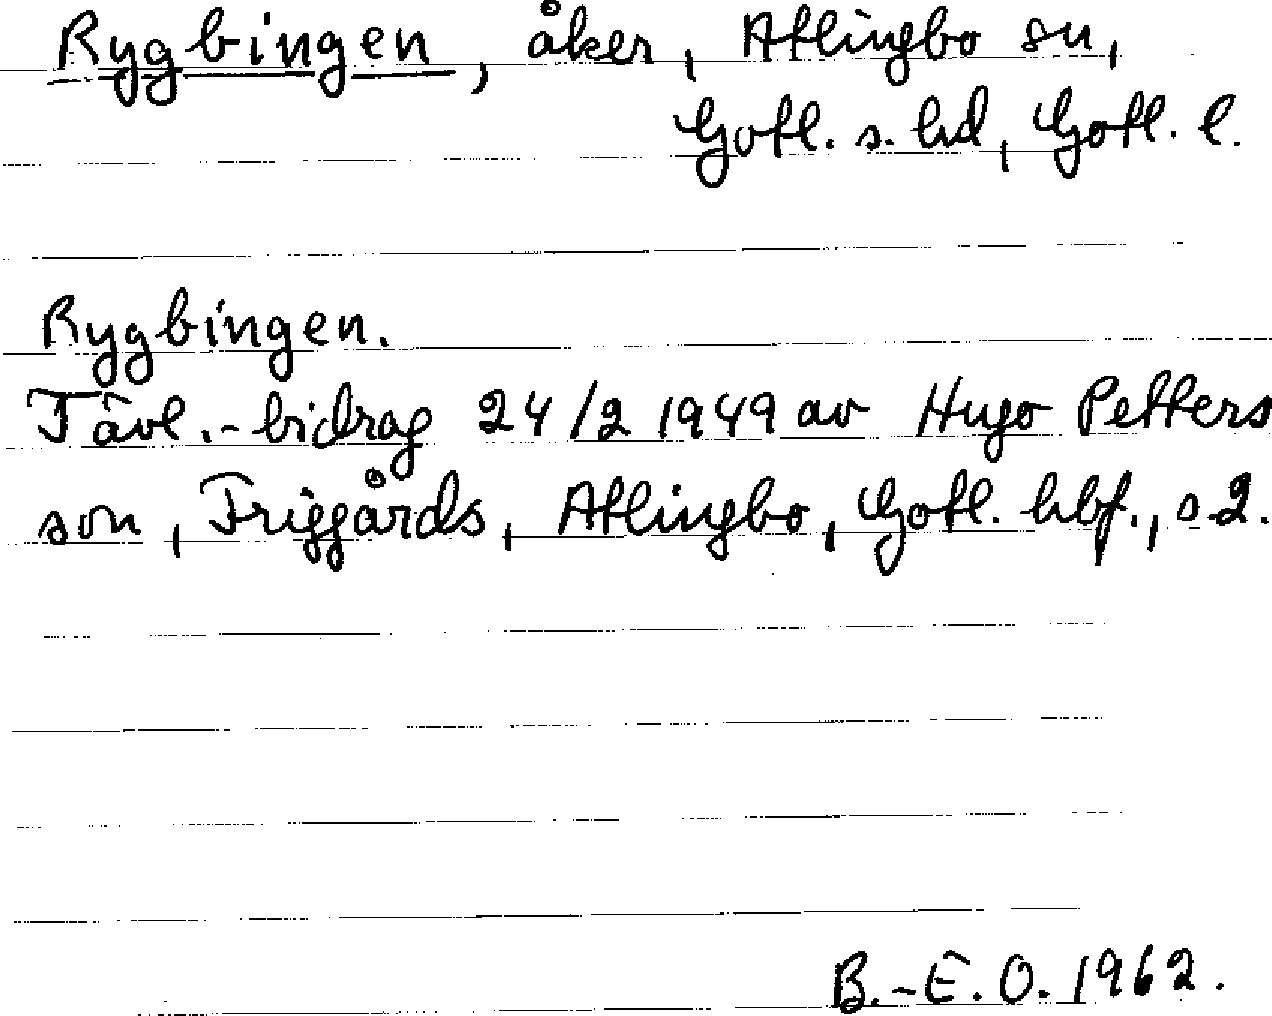 Rygbingen, åker, Atlingbo sn,
Gotl. s. hd, Gotl. l.
Rygbingen.
Tävl.-bidrag 24/2 1949 av Hugo Petters
son, Friggårds, Atlingbo, Gotl. hbf., s. 2.
B.-E. O. 1962.